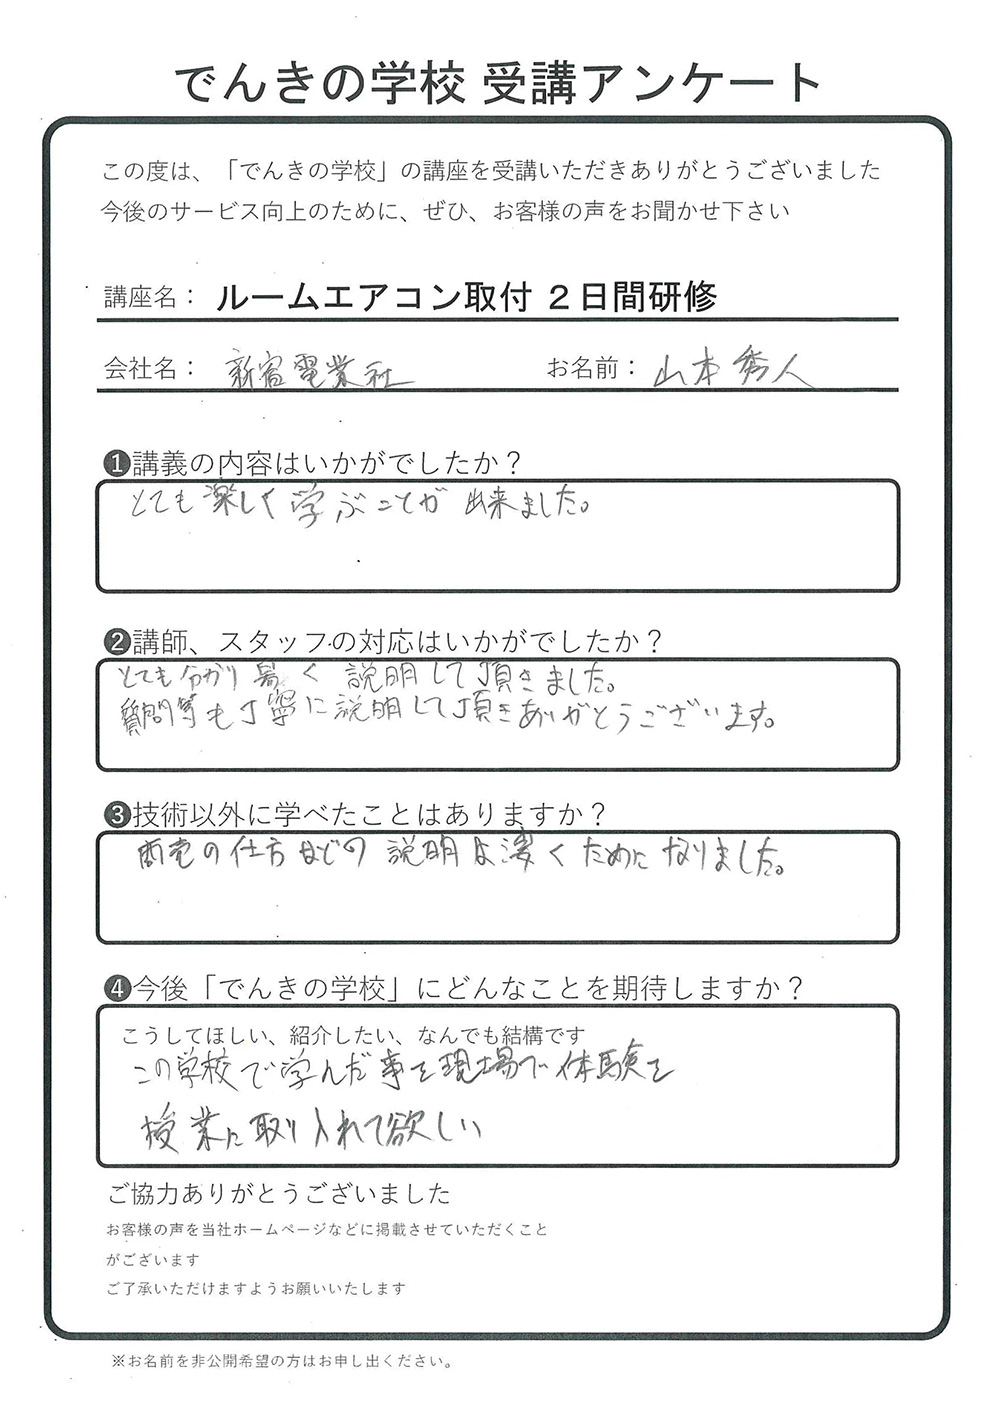 でんきの学校 受講アンケート
この度は、「でんきの学校」の講座を受講いただきありがとうございました
今後のサービス向上のために、ぜひ、お客様の声をお聞かせ下さい
講座名： ルームエアコン取付 ２日間研修
会社名： 新宿電業社 お名前： 山本秀人
❶講義の内容はいかがでしたか？
とても楽しく学ぶことが出来ました。
❷講師、スタッフの対応はいかがでしたか？
とても分かり易く説明して頂きました。
質問等も丁寧に説明して頂きありがとうございます。
❸技術以外に学べたことはありますか？
商売の仕方などの説明は凄くためになりました。
❹今後「でんきの学校」にどんなことを期待しますか？
こうしてほしい、紹介したい、なんでも結構です
この学校で学んだ事を現場で体験を
授業に取り入れて欲しい
ご協力ありがとうございました
お客様の声を当社ホームページなどに掲載させていただくこと
がございます
ご了承いただけますようお願いいたします
※お名前を非公開希望の方はお申し出ください。